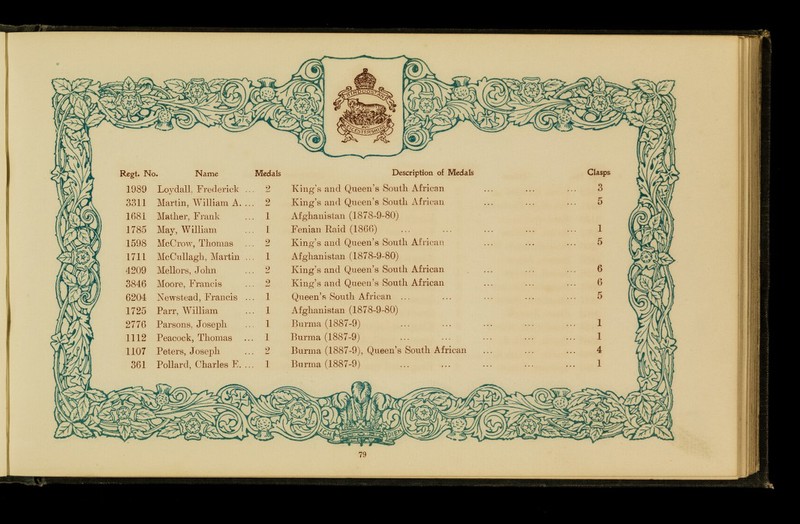 HINDOOSTAN
LEICESTERSHIRE
Regt. No. Name Medals Description of Medals Clasps
1989 Loydall, Frederick ... 2 King's and Queen's South African ... ... ... 3
3311 Martin, William A. ... 2 King's and Queen's South African ... ... ... 5
1681 Mather, Frank ... 1 Afghanistan (1878-9-80)
1785 May, William ... 1 Fenian Raid (1866) ... ... ... ... ... 1
1598 McCrow, Thomas ... 2 King's and Queen's South African ... ... ... 5
1711 McCullagh, Martin ... 1 Afghanistan (1878-9-80)
4209 Mellors, John ... 2 King's and Queen's South African ... ... ... 6
3846 Moore, Francis ... 2 King's and Queen's South African ... ... ... 6
6204 Newstead, Francis ... 1 Queen's South African ... ... ... ... ... 5
1725 Parr, William ... 1 Afghanistan (1878-9-80)
2776 Parsons, Joseph ... 1 Burma (1887-9) ... ... ... ... ... 1
1112 Peacock, Thomas ... 1 Burma (1887-9) ... ... ... ... ... 1
1107 Peters, Joseph ... 2 Burma (1887-9), Queen's South African ... ... ... 4
361 Pollard, Charles E. ... 1 Burma (1887-9) ... ... ... ... ... 1
79